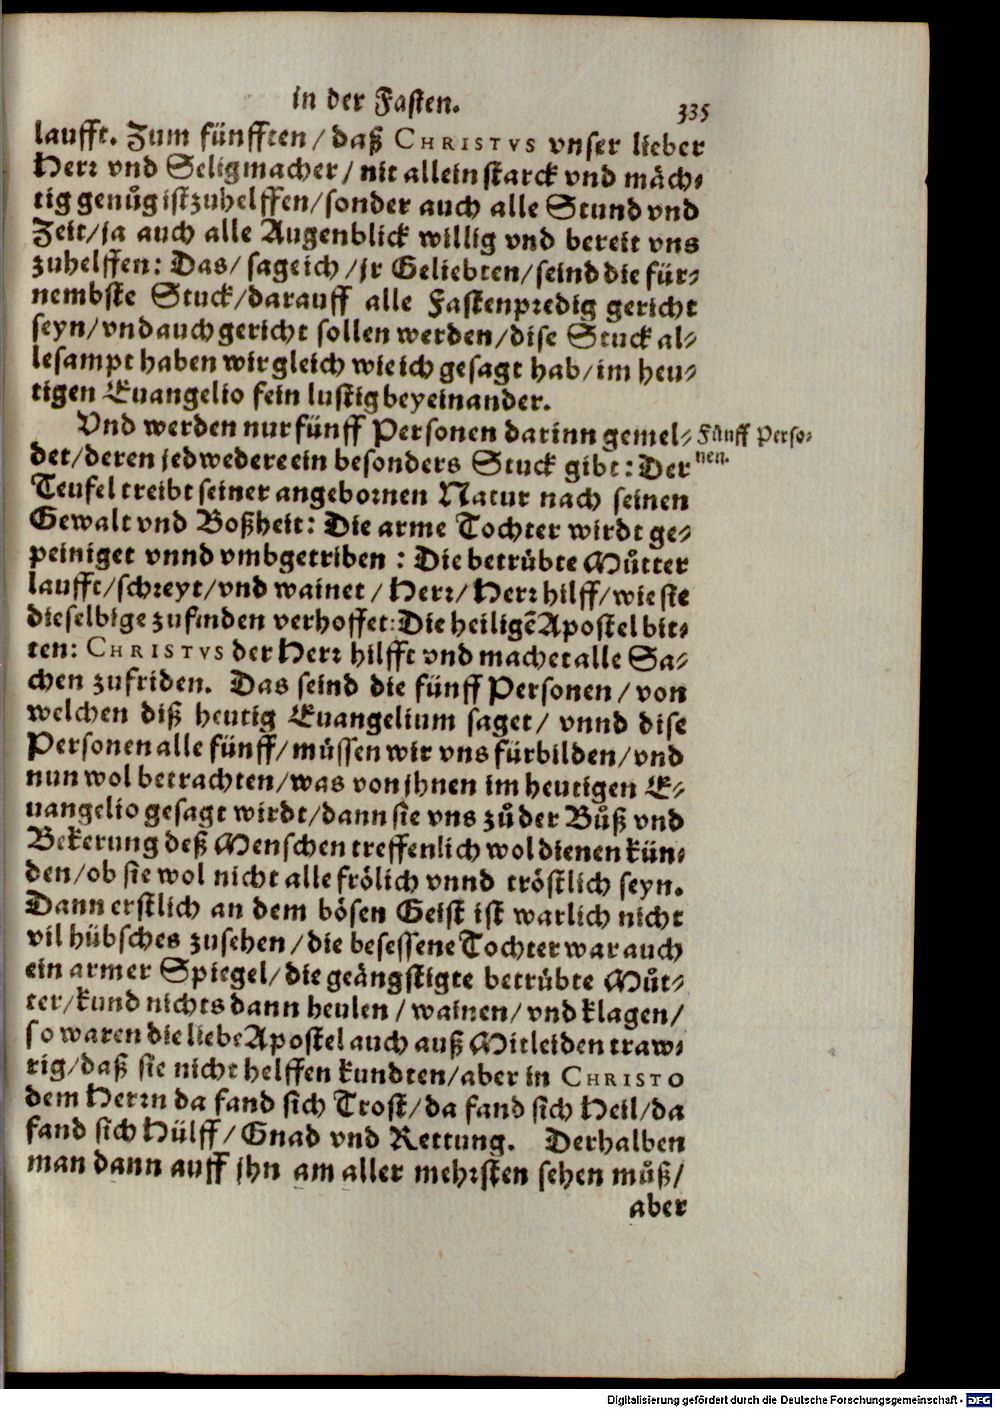 in der Fasten.
335
laufft. Zum fünfften/ daß CHRISTVS vnser lieber
Herr vnd Seligmacher/ nit allein starck vnd mäch-
tig genůg ist zuhelffen/ sonder auch alle Stund vnd
Zeit/ ja auch alle Augenblick willig vnd bereit vns
zuhelffen: Das/ sage ich/ jr Geliebten/ seind die für-
nembste Stuck/ darauff alle Fastenpredig gericht
seyn/ vnd auch gericht sollen werden/ dise Stuck al-
lesampt haben wir gleich wie ich gesagt hab/ im heu-
tigen Euangelio fein lustig beyeinander.
Vnd werden nur fünff Personen darinn gemel-
Fünff Perso-
nen.
det/ deren jedwedere ein besonders Stuck gibt: Der
Teufel treibt seiner angebornen Natur nach seinen
Gewalt vnd Boßheit: Die arme Tochter wirdt ge-
peiniget vnnd vmbgetriben: Die betrübte Můtter
laufft/ schreyt/ vnd wainet/ Herr/ Herr hilff/ wie sie
dieselbige zufinden verhoffet: Die heiligē Apostel bit-
ten: CHRISTVS der Herr hilfft vnd machet alle Sa-
chen zufriden. Das seind die fünff Personen/ von
welchen diß heutig Euangelium saget/ vnnd dise
Personen alle fünff/ müssen wir vns fürbilden/ vnd
nun wol betrachten/ was von jhnen im heutigen E-
uangelio gesagt wirdt/ dann sie vns zů der Bůß vnd
Bekerung deß Menschen treffenlich wol dienen kün-
den/ ob sie wol nicht alle frölich vnnd tröstlich seyn.
Dann erstlich an dem bösen Geist ist warlich nicht
vil hübsches zusehen/ die besessene Tochter war auch
ein armer Spiegel/ die geängstigte betrübte Můt-
ter/ kund nichts dann heulen/ wainen/ vnd klagen/
so waren die liebe Apostel auch auß Mitleiden traw-
rig/ daß sie nicht helffen kundten/ aber in CHRISTO
dem Herrn da fand sich Trost/ da fand sich Heil/ da
fand sich Hülff/ Gnad vnd Rettung. Derhalben
man dann auff jhn am aller mehrsten sehen můß/
aber
Digitalisierung gefördert durch die Deutsche Forschungsgemeinschaft - DFG